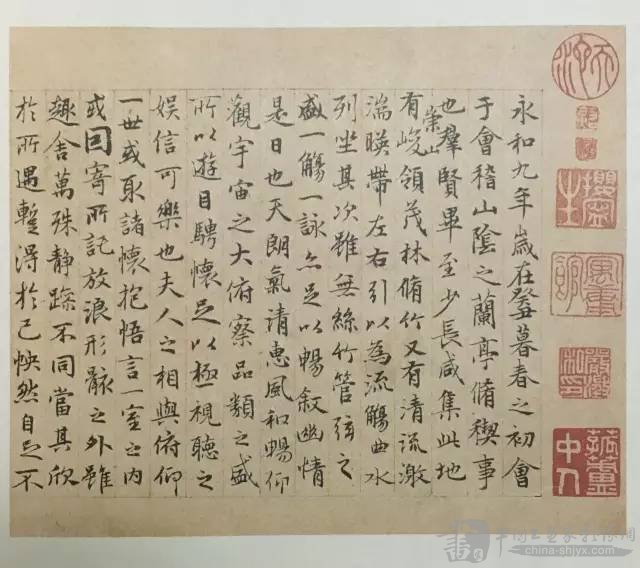 永和九年歲在癸丑暮春之初會
于會稽山陰之蘭亭脩稧事
也羣賢畢至少長咸集此地
有崇山峻領茂林脩竹又有清流激
湍暎帶左右引以為流觴曲水
列坐其次雖無絲竹管弦之
盛一觴一詠亦足以暢敘幽情
是日也天朗氣清惠風和暢仰
觀宇宙之大俯察品類之盛
所以遊目騁懷足以極視聽之
娛信可樂也夫人之相與俯仰
一世或取諸懷抱悟言一室之內
或因寄所託放浪形骸之外雖
趣舍萬殊静躁不同當其欣
於所遇蹔得於己怏然自足不
china-shjyx.com